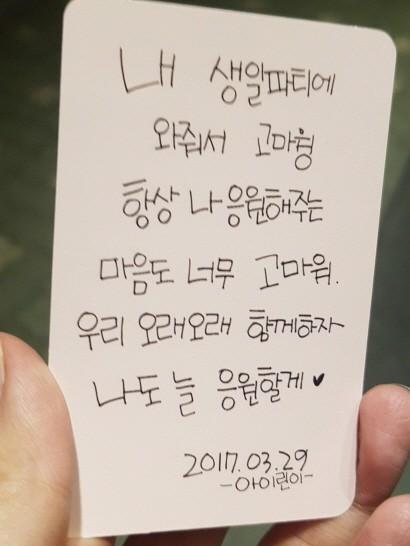 내 생일파티에
와줘서 고마웡
항상 나 응원해주는
마음도 너무 고마워.
우리 오래오래 함께하자
나도 늘 응원할게 ♥
2017.03.29
-아이린이-